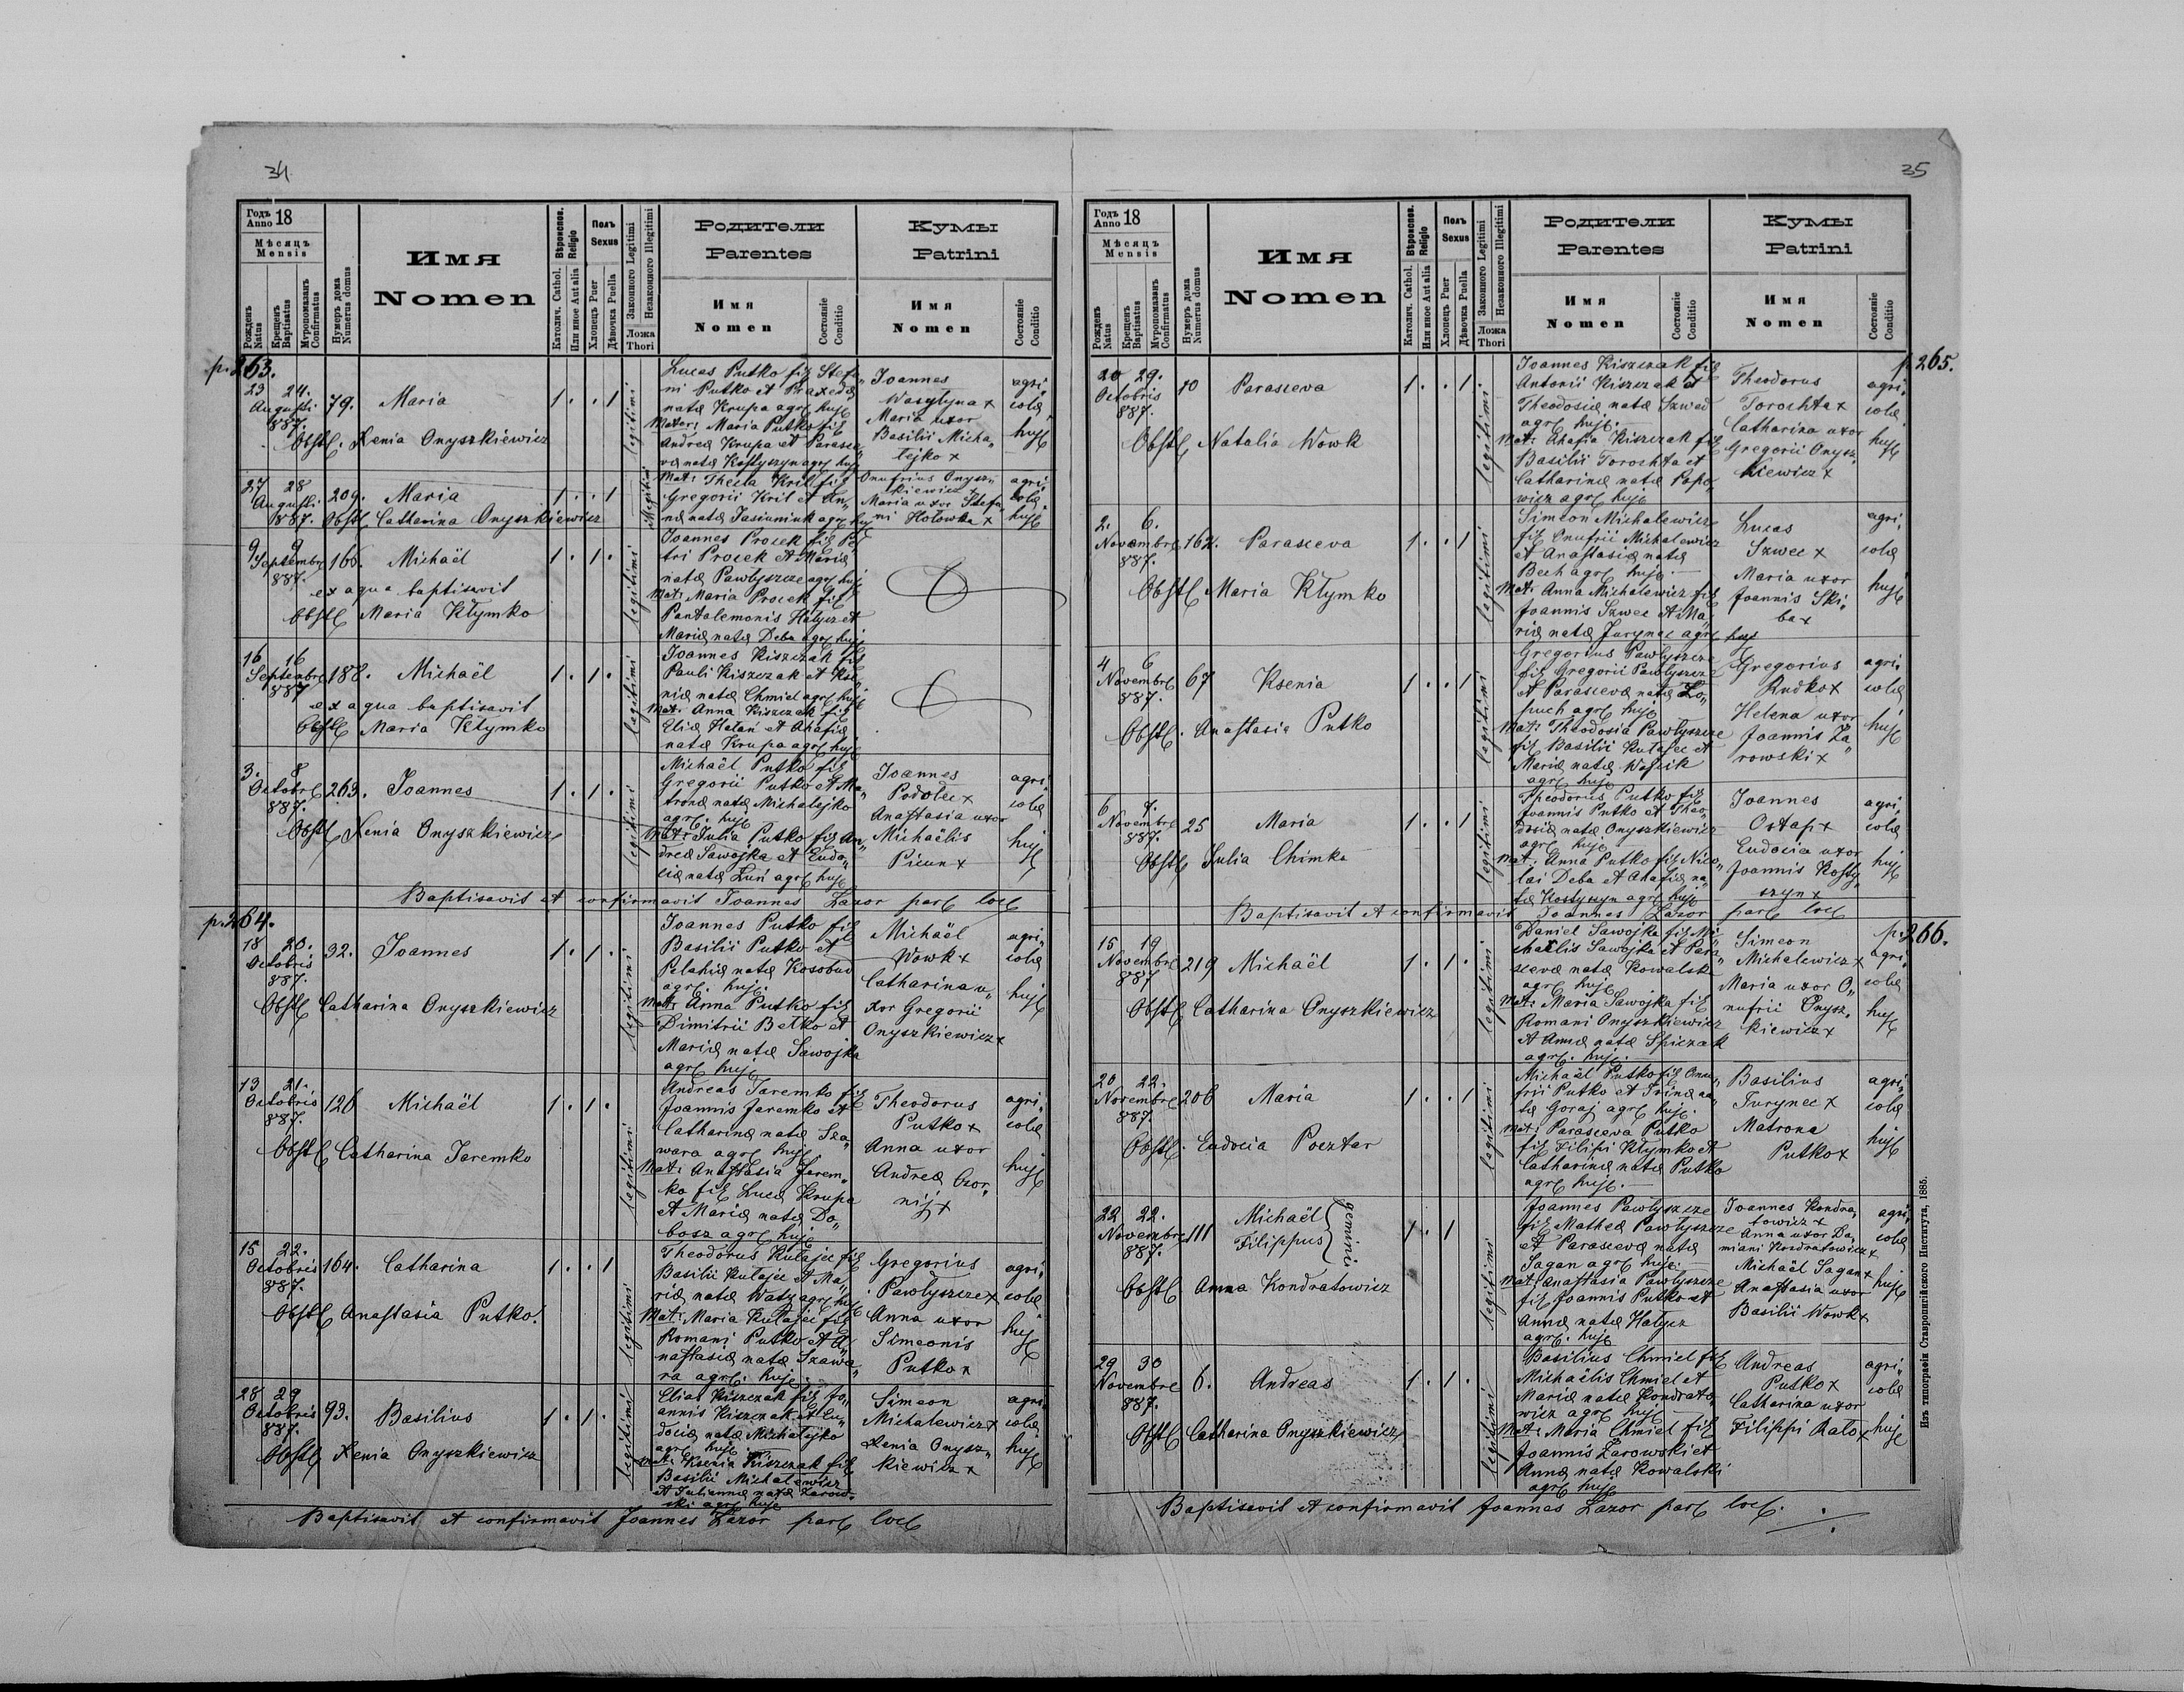 34
Годъ Anno 18
Мѣсяцъ Mensis
Рожденъ Natus
Крещенъ Baptisatus
Муропомазанъ Confirmatus
Нумеръ дома Numerus domus
Имя Nomen
Вѣроиспов. Religio
Католич. Cathol.
Или иное Aut alia
Полъ Sexus
Хлопецъ Puer
Дѣвочка Puella
Законного Legitimi
Незаконного Illegitimi
Ложа Thori
Родители Parentes
Имя Nomen
Состояніе Conditio
Кумы Patrini
Имя Nomen
Состояніе Conditio
p. 263.
23 24.
Augusti
887.
79. Maria
1 . . 1
legitimi
Obst. Xenia Onyszkiewicz
Lucas Putko fil Stefa„
ni Putko et Praxedæ
natæ Krupa agr huj
Mater: Maria Putko fil
Andreæ Krupa et Parasce„
væ natæ Kostyszyn agr huj
Joannes
Wasylyna x
Maria uxor
Basilii Micha„
lejko x
agri„
colæ
huj
27 28
Augusti
887.
209. Maria
1 . . 1
illegitimi
Obst Catharina Onyszkiewicz
Mat: Thecla Kril fil
Gregorii Kril et An„
næ natæ Jasiuniuk agr huj
Onufrius Onysz„
kiewicz
Maria uxor Stefa„
ni Hołowka x
agri„
colæ
huj
9 9
Septembr
887.
166. Michaël
1 . 1 .
legitimi
ex aqua baptisavit
Obst Maria Kłymko
Joannes Procek fil Pe„
tri Procek et Mariæ
natæ Pawłyszcze agr huj
Mat: Maria Procek fil
Pantalemonis Hałycz et
Mariæ natæ Deba agr huj
16 16
Septembre
887
188. Michaël
1 . 1 .
legitimi
ex aqua baptisavit
Obst Maria Kłymko
Joannes Kiszczak fil
Pauli Kiszczak et Kse„
niæ natæ Chmiel agr huj
Mat: Anna Kiszczak fil
Eliæ Hałań et Ahafiæ
natæ Krupa agr huj
3. 8
Octobr
887.
263. Joannes
1 . 1 .
legitimi
Obst Xenia Onyszkiewicz
Michaël Putko fil
Gregorii Putko et Ma„
tronæ natæ Michalejko
agr. huj
Mat: Julia Putko fil An„
dreæ Sawojka et Eudo„
ciæ natæ Łuń agr huj
Joannes
Podolec x
Anastasia uxor
Michaëlis
Picun x
agri„
colæ
huj
Baptisavit et confirmavit Joannes Łazor par loc
p. 264.
18 20.
Octobris
887.
32. Joannes
1 . 1 .
legitimi
Obst Catharina Onyszkiewicz
Joannes Putko fil
Basilii Putko et
Pelahiæ natæ Kosobud
agr. huj.
Mat: Anna Putko fil
Dimitrii Betko et
Mariæ natæ Sawojka
agr huj
Michaël
Wowk x
Catharina u„
xor Gregorii
Onyszkiewicz x
agri„
colæ
huj
13 21.
Octobris
887.
126 Michaël
1 . 1 .
legitimi
Obst Catharina Jaremko
Andreas Jaremko fil
Joannis Jaremko et
Catharinæ natæ Sza„
wara agr huj.
Mat: Anastasia Jarem„
ko fil Lucæ Krupa
et Mariæ natæ Do„
bosz agr huj
Theodorus
Putko x
Anna uxor
Andreæ Czor„
nij x
agri„
colæ
huj
15 22.
Octobris
887.
164. Catharina
1 . . 1
legitimi
Obst Anastasia Putko.
Theodorus Kułajec fil
Basilii Kułajec et Ma„
riæ natæ Watz agr huj
Mat: Maria Kułajec fil
Romani Putko et A„
nastasiæ natæ Szawa„
ra agr. huj.
Gregorius
Pawłyszcze x
Anna uxor
Simeonis
Putko x
agri„
colæ
huj
28 29
Octobris
887.
93. Basilius
1 . 1 .
legitimi
Obst Xenia Onyszkiewicz
Elias Kiszczak fil Jo„
annis Kiszczak et Eu„
dociæ natæ Michalejko
agr huj
Mat: Ksenia Kiszczak fil
Basilii Michalewicz
et Julianæ natæ Żarow„
ski agr huj
Simeon
Michalewicz x
Xenia Onysz„
kiewicz x
agri„
colæ
huj
Baptisavit et confirmavit Joannes Łazor par loc
35
Годъ Anno 18
Мѣсяцъ Mensis
Рожденъ Natus
Крещенъ Baptisatus
Муропомазанъ Confirmatus
Нумеръ дома Numerus domus
Имя Nomen
Вѣроиспов. Religio
Католич. Cathol.
Или иное Aut alia
Полъ Sexus
Хлопецъ Puer
Дѣвочка Puella
Законного Legitimi
Незаконного Illegitimi
Ложа Thori
Родители Parentes
Имя Nomen
Состояніе Conditio
Кумы Patrini
Имя Nomen
Состояніе Conditio
p. 265.
20 29.
Octobris
887.
10 Parasceva
1 . . 1 .
legitimi
Obst Natalia Wowk
Joannes Kiszczak fil
Antonii Kiszczak et
Theodosiæ natæ Szwed
agr huj.
Mat: Ahafia Kiszczak fil
Basilii Toroshta et
Catharinæ natæ Popo„
wicz agr huj
Theodorus
Toroshta x
Catharina uxor
Gregorii Onysz„
kiewicz x
agri„
colæ
huj
2. 6.
Novembre
887.
162. Parasceva
1 . . 1
legitimi
Obst Maria Kłymko
Simeon Michalewicz
fil Onufrii Michalewicz
et Anastasiæ natæ
Bech agr huj.
Mat: Anna Michalewicz fil
Joannis Szwec et Ma„
riæ natæ Jurynec agr huj
Lucas
Szwec x
Maria uxor
Joannis Ski„
ba x
agri„
colæ
huj
4 6
Novembre
887.
67 Ksenia
1 . . 1
legitimi
Obst. Anastasia Putko
Gregorius Pawłyszcze
fil Gregorii Pawłyszcze
et Parascevæ natæ Ło„
puch agr huj
Mat: Theodosia Pawłyszcze
fil Basilii Kułajec et
Mariæ natæ Wojcik
agr huj
Gregorius
Rudko x
Helena uxor
Joannis Ża„
rowski x
agri„
colæ
huj
6 7.
Novembre
887.
25 Maria
1 . . 1
legitimi
Obst Julia Chimka
Theodorus Putko fil
Joannis Putko et Theo„
dosiæ natæ Onyszkiewicz
agr huj
Mat. Anna Putko fil Nico„
lai Deba et Ahafiæ na„
tæ Kostyszyn agr huj
Joannes
Ostap x
Eudocia uxor
Joannis Kosty„
szyn x
agri„
colæ
huj
Baptisavit et confirmavit Joannes Łazor par loc
p. 266.
15 19
Novembre
887
219 Michaël
1 . 1 .
legitimi
Obst Catharina Onyszkiewicz
Daniel Sawojka fil Mi„
chaëlis Sawojka et Para„
scevæ natæ Kowalski
agr huj
Mat: Maria Sawojka fil
Romani Onyszkiewicz
et Annæ natæ Spiczak
agr. huj.
Simeon
Michalewicz x
Maria uxor O„
nufrii Onysz„
kiewicz x
agri„
colæ
huj
20 22.
Novembre
887.
206 Maria
1 . . 1
legitimi
Obst. Eudocia Pocztar
Michaël Putko fil Onu„
frii Putko et Irinæ na„
tæ Goraj agr huj.
Mat: Parasceva Putko
fil Filipi Kłymko et
Catharinæ natæ Putko
agr huj.
Basilius
Jurynec x
Matrona
Putko x
agri„
colæ
huj
22 22.
Novembre
887.
111 Michaël
Filippus
gemini
1 . 1
legitimi
Obst Anna Kondratowicz
Joannes Pawłyszcze
fil Matheæ Pawłyszcze
et Parascevæ natæ
Sagan agr huj.
Mat: Anastasia Pawłyszcze
fil Joannis Putko et
Annæ natæ Hałycz
agr. huj
Joannes Kondra„
towicz x
Anna uxor Da„
miani Kondratowicz x
Michaël Sagan x
Anastasia uxor
Basilii Wowk x
agri„
colæ
huj
29 30
Novembre
887.
6. Andreas
1 . 1 .
legitimi
Obst Catharina Onyszkiewicz
Basilius Chmiel fil
Michaëlis Chmiel et
Mariæ natæ Kondrato„
wicz agr huj
Mat: Maria Chmiel fil
Joannis Żarowski et
Annæ natæ Kowalski
agr huj
Andreas
Putko x
Catharina uxor
Filippi Rato x
agri„
colæ
huj
Baptisavit et confirmavit Joannes Łazor par loc.
Изъ типографіи Ставропигійского Института, 1885.